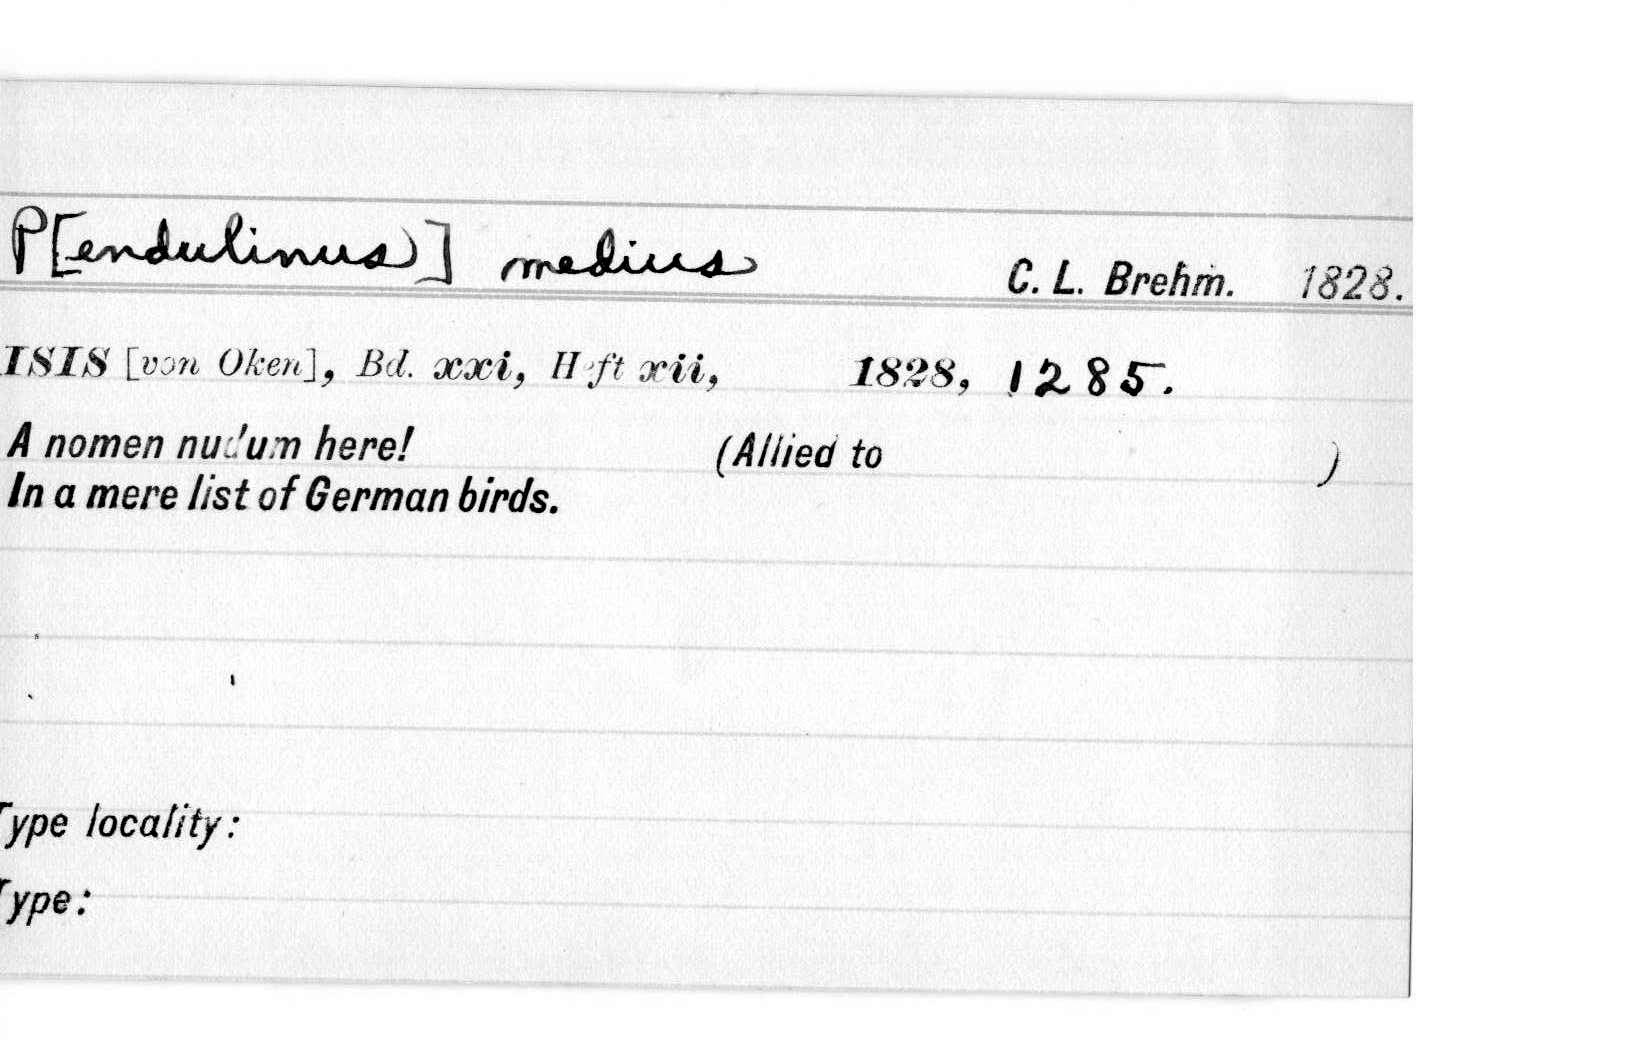 P[endulinus] medius C. L. Brehm. 1828.
ISIS [von Oken], Bd. xxi, Heft xii, 1828, 1285.
A nomen nudum here! (Allied to )
In a mere list of German birds.
Type locality:
Type: